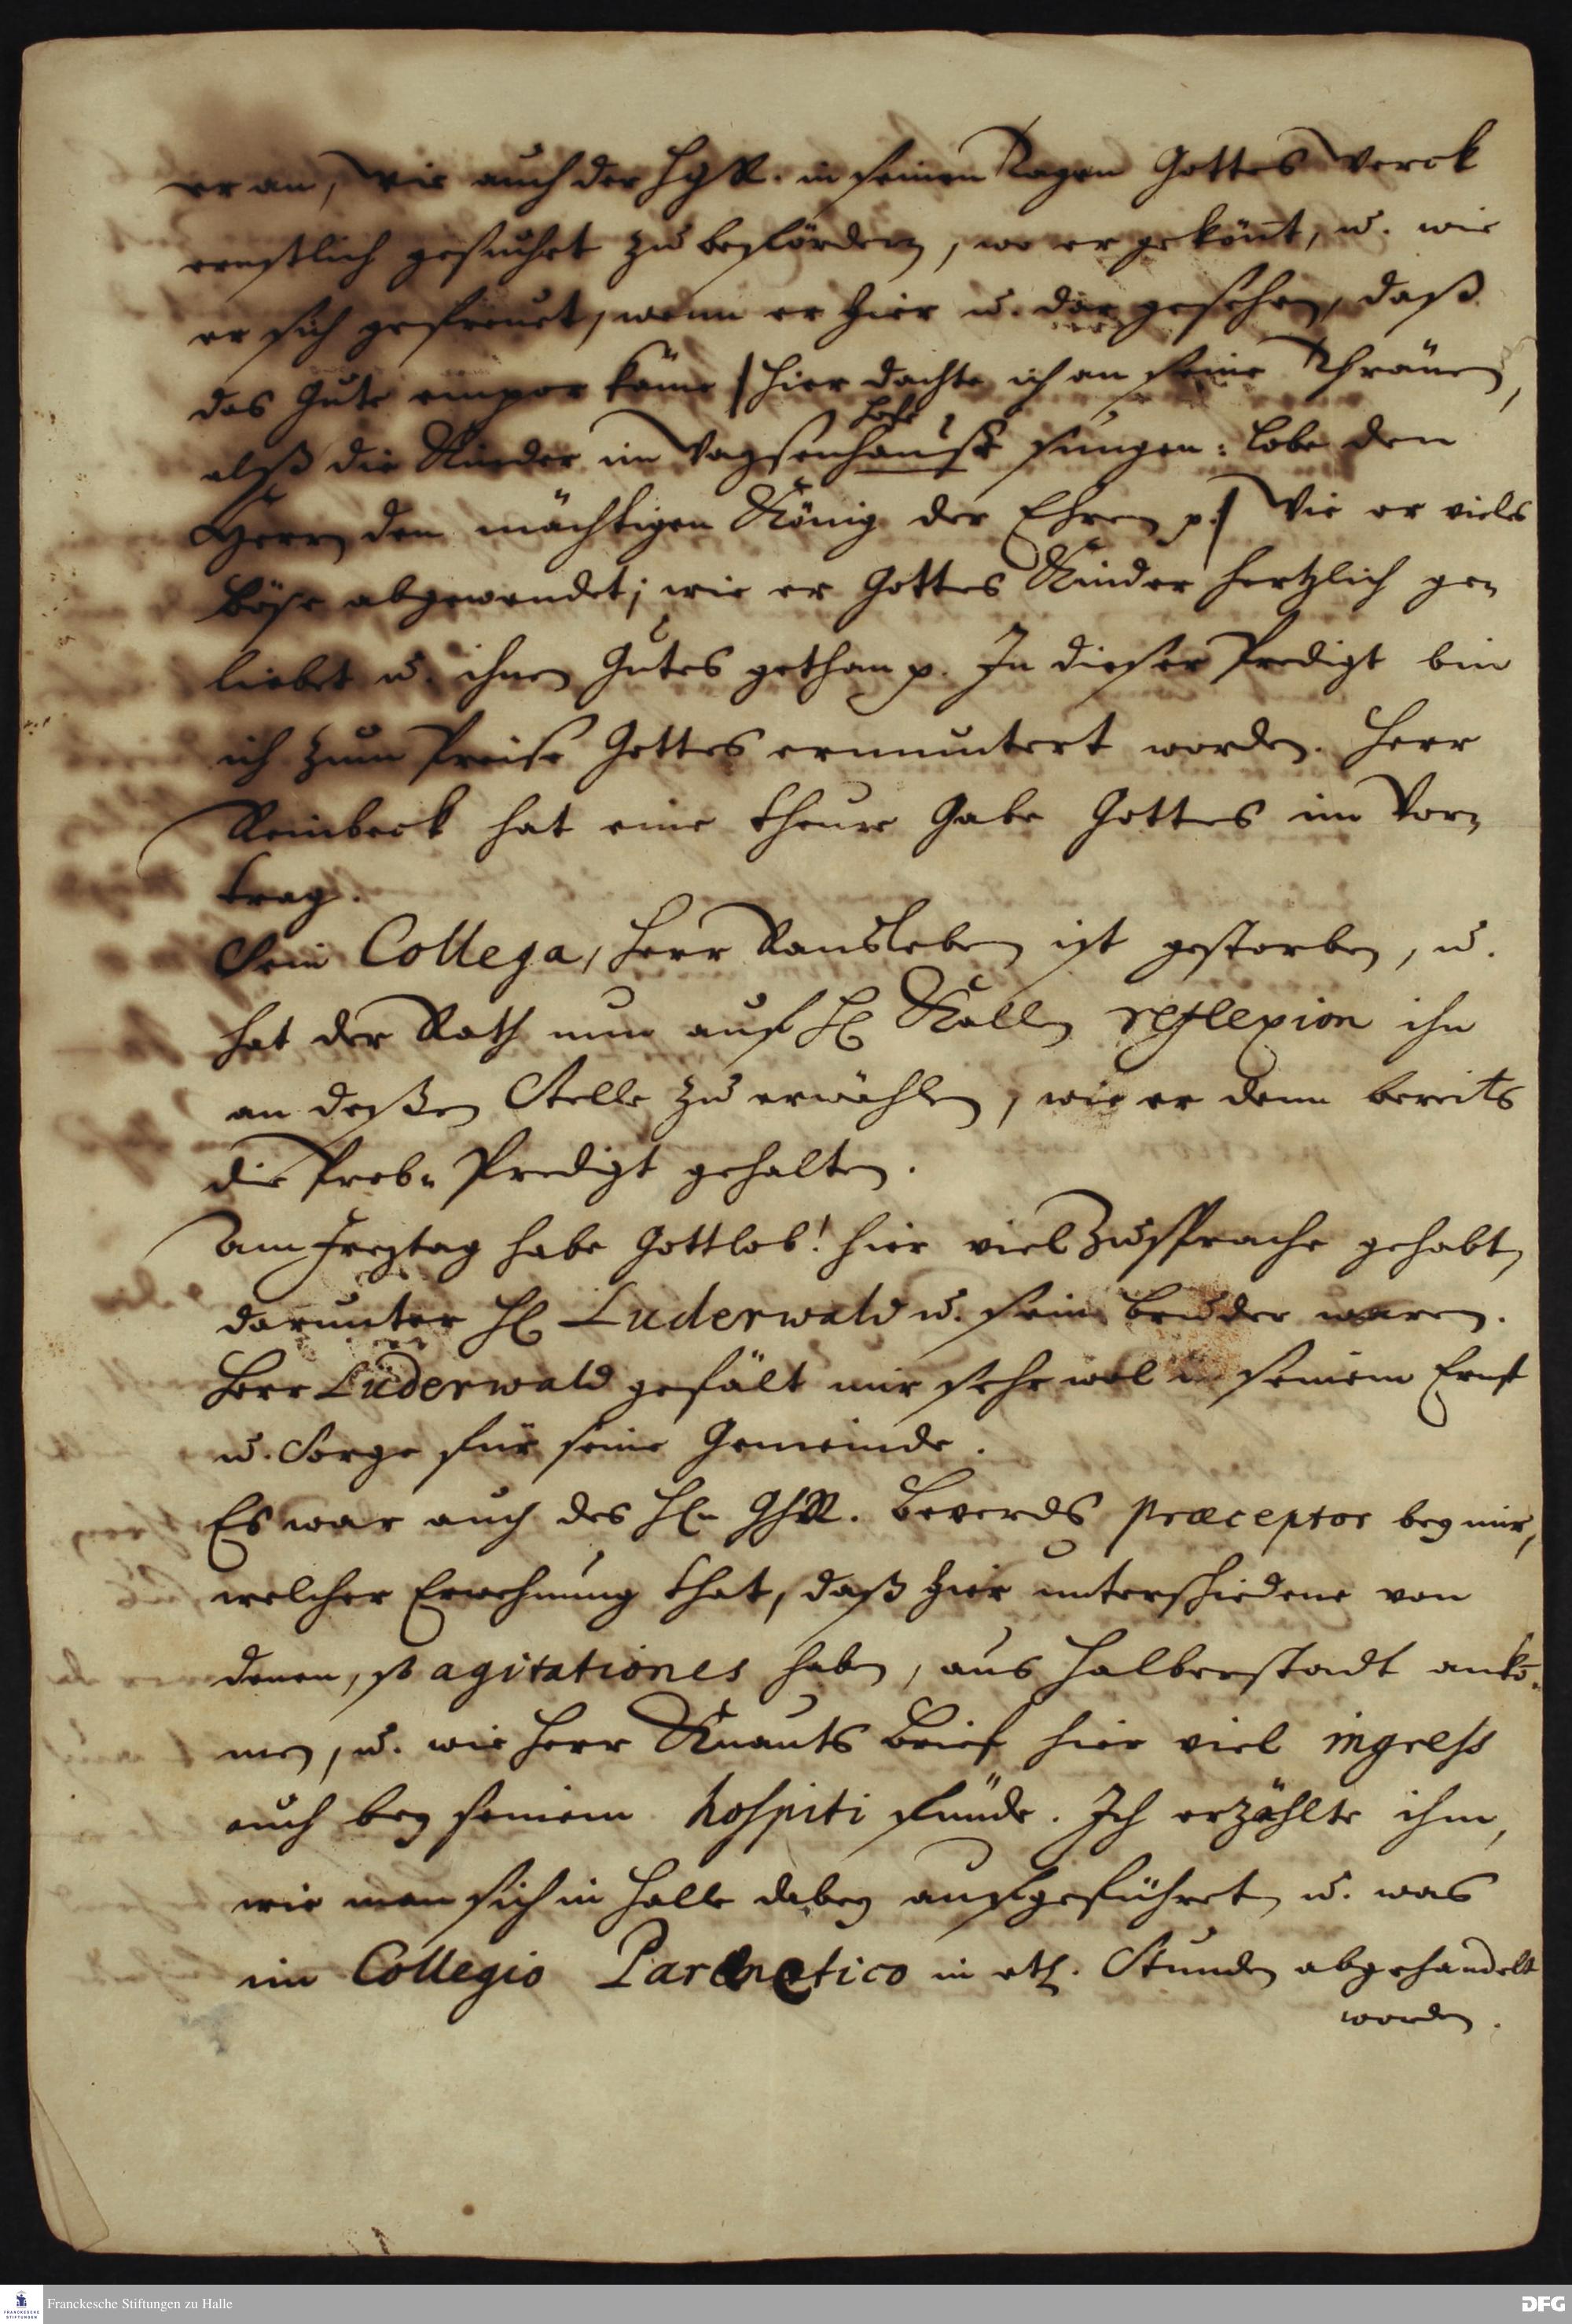 er an, wie auch der HGR. in seinen Tagen Gottes Werck
ernstlich gesuchet zu befördern, wo er gekönt, u. wie
er sich gefreuet, wenn er hier u. dar gesehen, daß
das Gute empor käme / hier dachte ich an seine Thränen,
alß die Kinder im Waysenhause sungen: Lobe den
Herrn den mächtigen König der Ehren p. / Wie er vieles
Böse abgewendet; wie er Gottes Kinder hertzlich ge-
liebet u. ihnen Gutes gethan p. In dieser Predigt bin
ich zum Preise Gottes ermuntert worden. Herr
Reinbeck hat eine theure Gabe Gottes im Vor-
trag.
Sein Collega, Herr Rausleben ist gestorben, u.
hat der Rath nun auf H. reflexion ihn
an deßen Stelle zu erwählen, wie er denn bereits
die Prob- Predigt gehalten.
Am Freytag habe Gottlob! hier viel Zusprache gehabt,
darunter H. Luderwald u. sein Bruder waren.
Herr Lüderwald gefält mir sehr wol in seinem Ernst
u. Sorge für seine Gemeinde.
Es war auch des H. GhR. præceptor bey mir,
welcher Erwehnung that, daß hier unterschiedene von
denen, so agitationes haben, aus Halberstadt ankō-
men, u. wie Herr Knauts Brief hier viel ingress
auch bey seinem hospiti fünde. Ich erzählte ihm,
wie man sich in Halle dabey aufgeführet, u. was
im Collegio Parænetico in etl. Stunden abgehandelt
worden.
Franckesche Stiftungen zu Halle
FRANCKESCHE
STIFTUNGEN
DFG